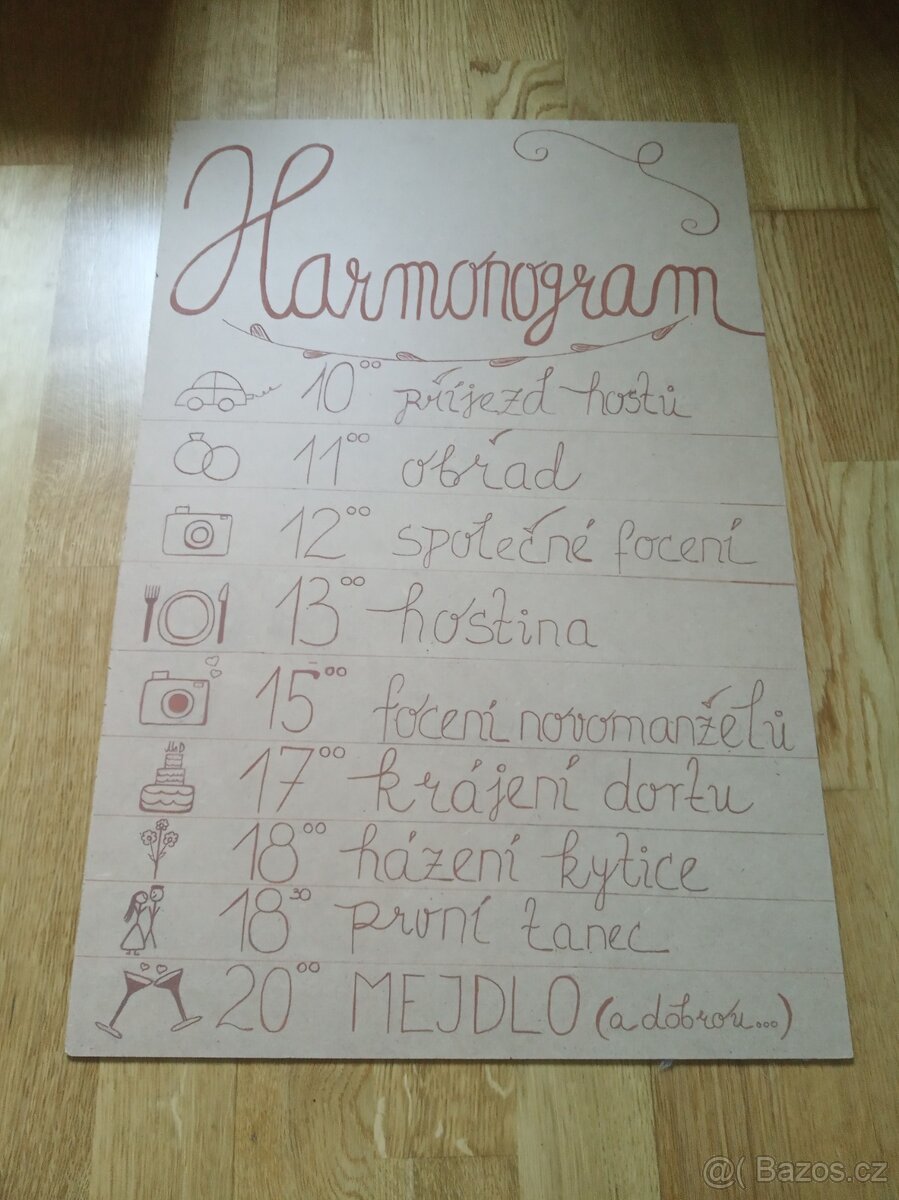 Harmonogram
10⁰⁰ příjezd hostů
11⁰⁰ obřad
12⁰⁰ společné focení
13⁰⁰ hostina
15⁰⁰ focení novomanželů
M&D
17⁰⁰ krájení dortu
18⁰⁰ házení kytice
18³⁰ první tanec
20⁰⁰ MEJDLO (a dobrou...)
@( Bazos.cz